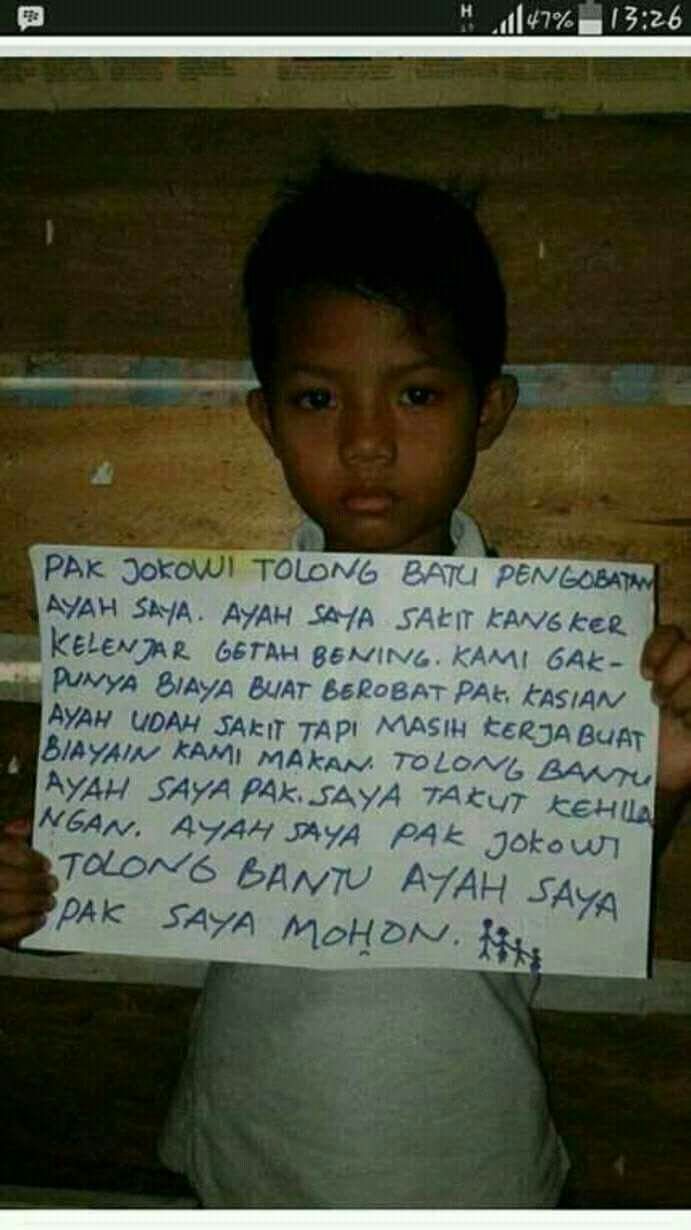 H 47% 13:26
PAK JOKOWI TOLONG BATU PENGOBATAN
AYAH SAYA. AYAH SAYA SAKIT KANGKER
KELENJAR GETAH BENING. KAMI GAK-
PUNYA BIAYA BUAT BEROBAT PAK. KASIAN
AYAH UDAH SAKIT TAPI MASIH KERJA BUAT
BIAYAIN KAMI MAKAN. TOLONG BANTU
AYAH SAYA PAK. SAYA TAKUT KEHILA
NGAN. AYAH SAYA PAK JOKOWI
TOLONG BANTU AYAH SAYA
PAK SAYA MOHON.